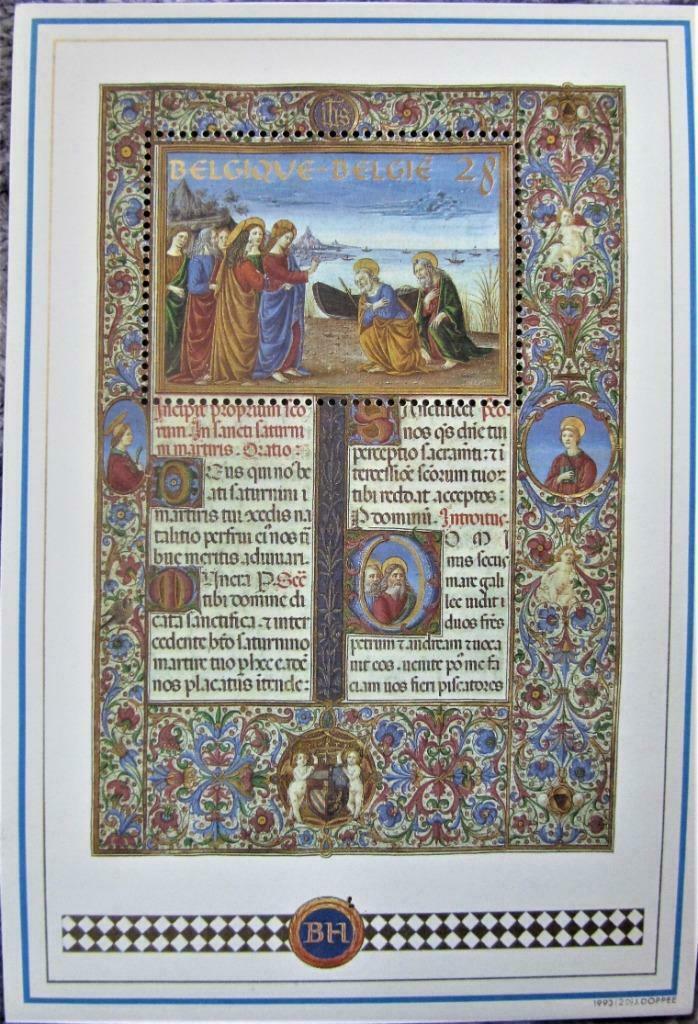 ihs
BELGIQUE-BELGIË 28
Incipit proprium sco
rum. In sancti saturni
ni martiris. Oratio:
Deus qui nos be
ati saturnini
martiris tui
talitio perfrui
bue meritis adiuuari.
Munera
tibi domine di
cata sanctifica. et inter
cedente bto saturnino
martire tuo
nos placatus itende:
Sanctificet
nos qs dne tui
perceptio sacramti: et i
tercessioe scorum tuor
tibi reddat acceptos:
P dominum. Introitus
DOMI
nus secus
mare gali
lee uidit
duos fres
petrum et andream et uoca
uit eos. uenite po me fa
ciam uos fieri piscatores
BH
1993 (20) J. DOPPEE